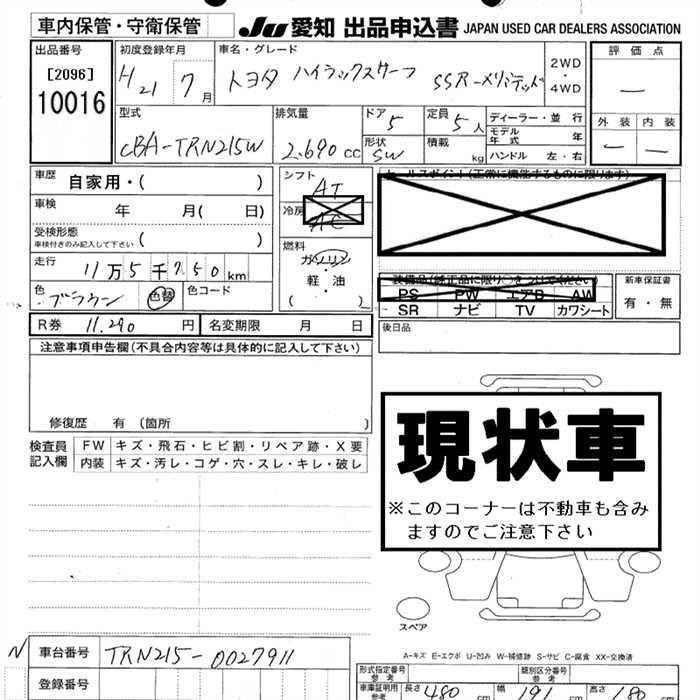 車内保管・守衛保管 JU 愛知 出品申込書 JAPAN USED CAR DEALERS ASSOCIATION
出品番号 初度登録年月 車名・グレード 2WD・4WD 評価点
[2096] H21 7月 トヨタ ハイラックスサーフ SSR- —
10016
型式 排気量 ドア 5 定員 5人 ディーラー・並行 外装 内装
CBA-TRN215W 2.690cc 形状 SW 積載 kg モデル年式 年 — —
ハンドル 左・右
車歴 自家用・( ) シフト AT セールスポイント(正常に機能するものに限ります)
車検 年 月( 日) 冷房 AC
受検形態 車検付きのみ記入して下さい ( ) 燃料 ガソリン・軽油 ( )
走行 11万5千750km
装備品(純正品に限り○をつけてください) 新車保証書
色 ブラウン 色替 色コード PS PW エアB AW 有・無
SR ナビ TV カワシート
R券 11,290円 名変期限 月 日 後日品
注意事項申告欄(不具合内容等は具体的に記入して下さい)
修復歴 有 (箇所 )
現状車
※このコーナーは不動車も含みますのでご注意下さい
検査員記入欄 FW キズ・飛石・ヒビ割・リペア跡・X要
内装 キズ・汚レ・コゲ・穴・スレ・キレ・破レ
スペア
A-キズ E-エクボ U-凹み W-補修跡 S-サビ C-腐食 XX-交換済
N 車台番号 TRN215-0027911
登録番号
型式指定番号 類別区分番号
車庫証明用 参考 長さ 480cm 参考 幅 191cm 参考 高さ 180cm